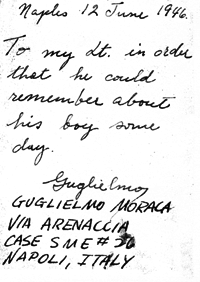 Naples 12 June 1946.
To my Lt. in order
that he could
remember about
his boy some
day.
Guglielmo
GUGLIELMO MORACA
VIA ARENACCIA
CASE SME #
NAPOLI, ITALY